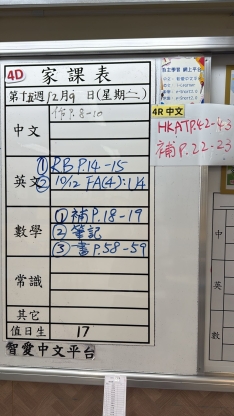 4D 家課表
第十五週12月9日(星期二)
中文
作P.8-10
英文
① RB P.14-15
② 10/12 FA(4): U4
數學
① 補P.18-19
② 筆記
③ 書P.58-59
常識
其它
值日生 17
智愛中文平台
自主學習 網上平台
4R 中文
HKAT P.42-43
補P.22-23
中
英
數